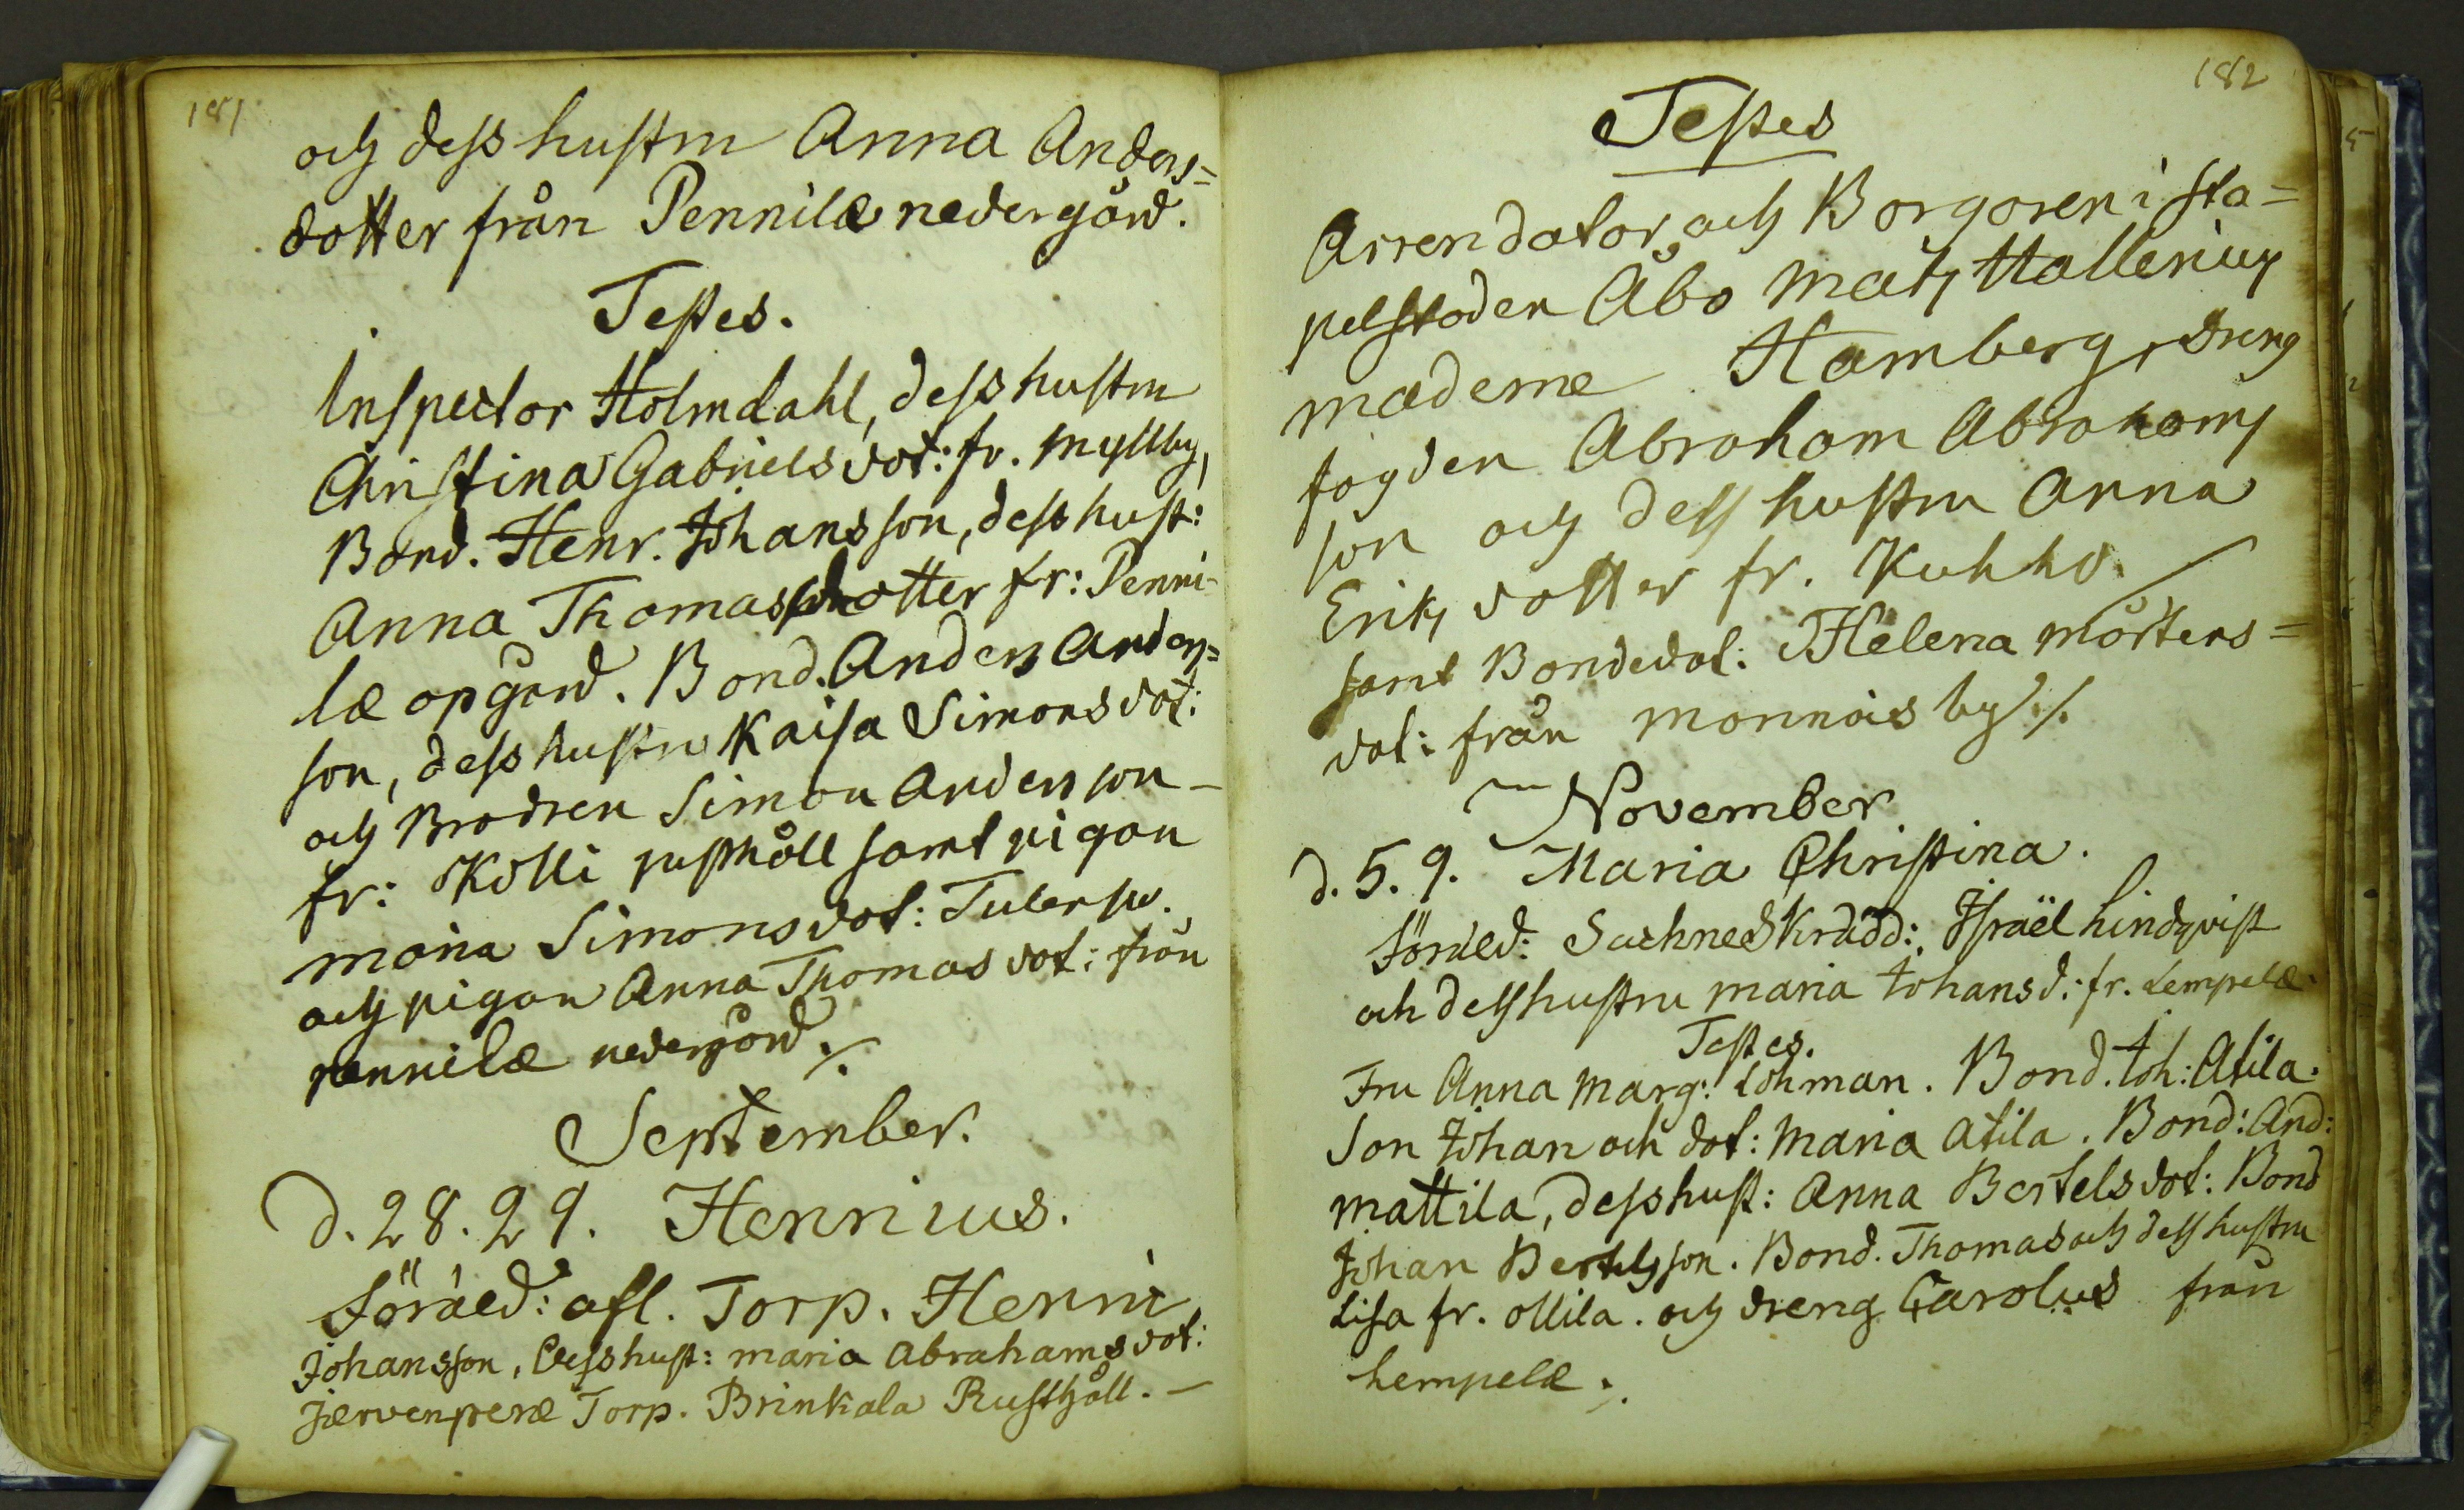 181
och dess hustru Anna Anders=
dotter från Pennilæ nedergård.
Testes.
Inspector Holmdahl, dess hustru
Christina Gabriels dot: fr. Myllby,
Bond. Henr. Johansson, dess hust:
Anna Thomasdotter fr: Penni-
læ opgård. Bond. Anders Anders=
son, dess hustru Kaisa Simons dot:
och Brodren Simon Andersson –
fr: Kölli rusthåll samt pigan
Maria Simons dot:
och pigan Anna Thomas dot: från
pennilæ nedergård ./.
September.
d. 28. 29. Henricus.
Föräld: afl. Torp. Henric
Johansson, dess hust: Maria Abrahams dot:
Jærvenperæ Torp. Brinkala Rusthåll. –
182
Testes
Arrendator och Borgaren i sta=
pelstaden Åbo Mats Hallerius
maderne Hamberg, dreng
fogden Abraham Abrahams
son och dess hustru Anna
Eriks dotter fr. Kuhho.
samt Bondedot: Helena Mårtens=
dot: från Monnois by ./.
November
d. 5. 9. Maria Christina.
Föräld: Sochneskrädd: Israël Lindqvist
och dess hustru Maria Johansd: fr. Lempelæ.
Testes.
Fru Anna Marg: Lohman. Bond. Joh: Atila.
Son Johan och dot: Maria Atila. Bond: And:
Mattila, dess hust: Anna Bertels dot: Bond
Johan Bertelsson. Bond. Thomas och dess hustru
Lisa fr. Ollila. och dreng Carolus från
Lempelæ ./.